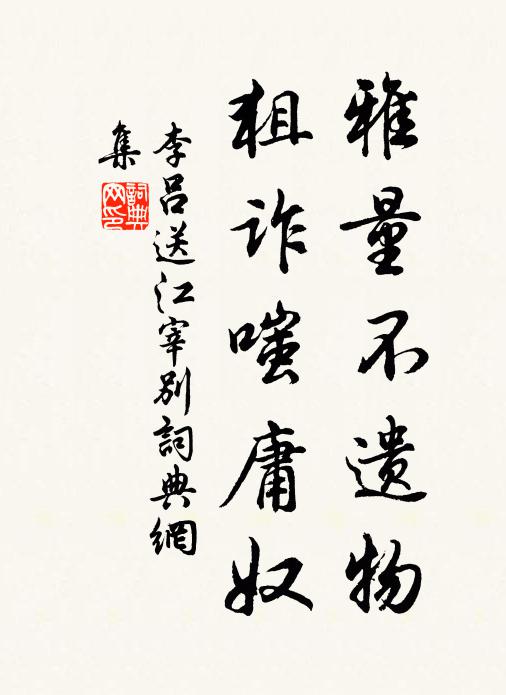 雅量不遗物
粗诈嗤庸奴
李吕送江宰别詞典網
集
詞典
网印